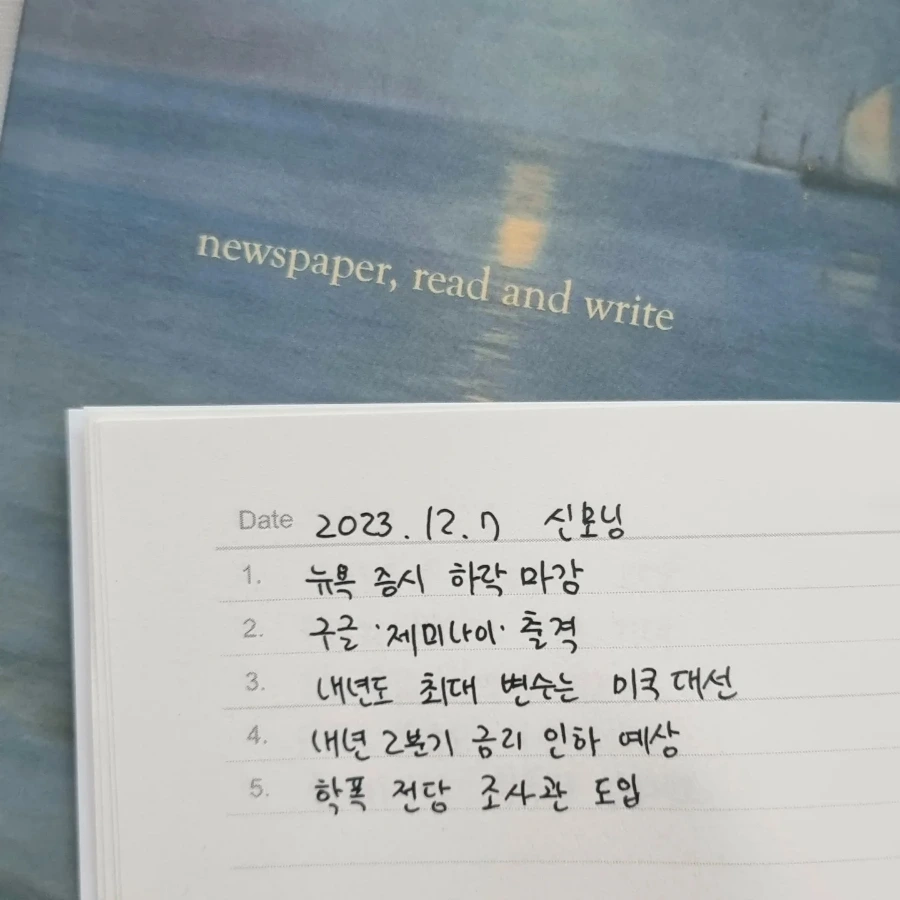 newspaper, read and write
Date 2023.12.7 신모닝
1. 뉴욕 증시 하락 마감
2. 구글 '제미나이' 출격
3. 내년도 최대 변수는 미국 대선
4. 내년 2분기 금리 인하 예상
5. 학폭 전담 조사관 도입